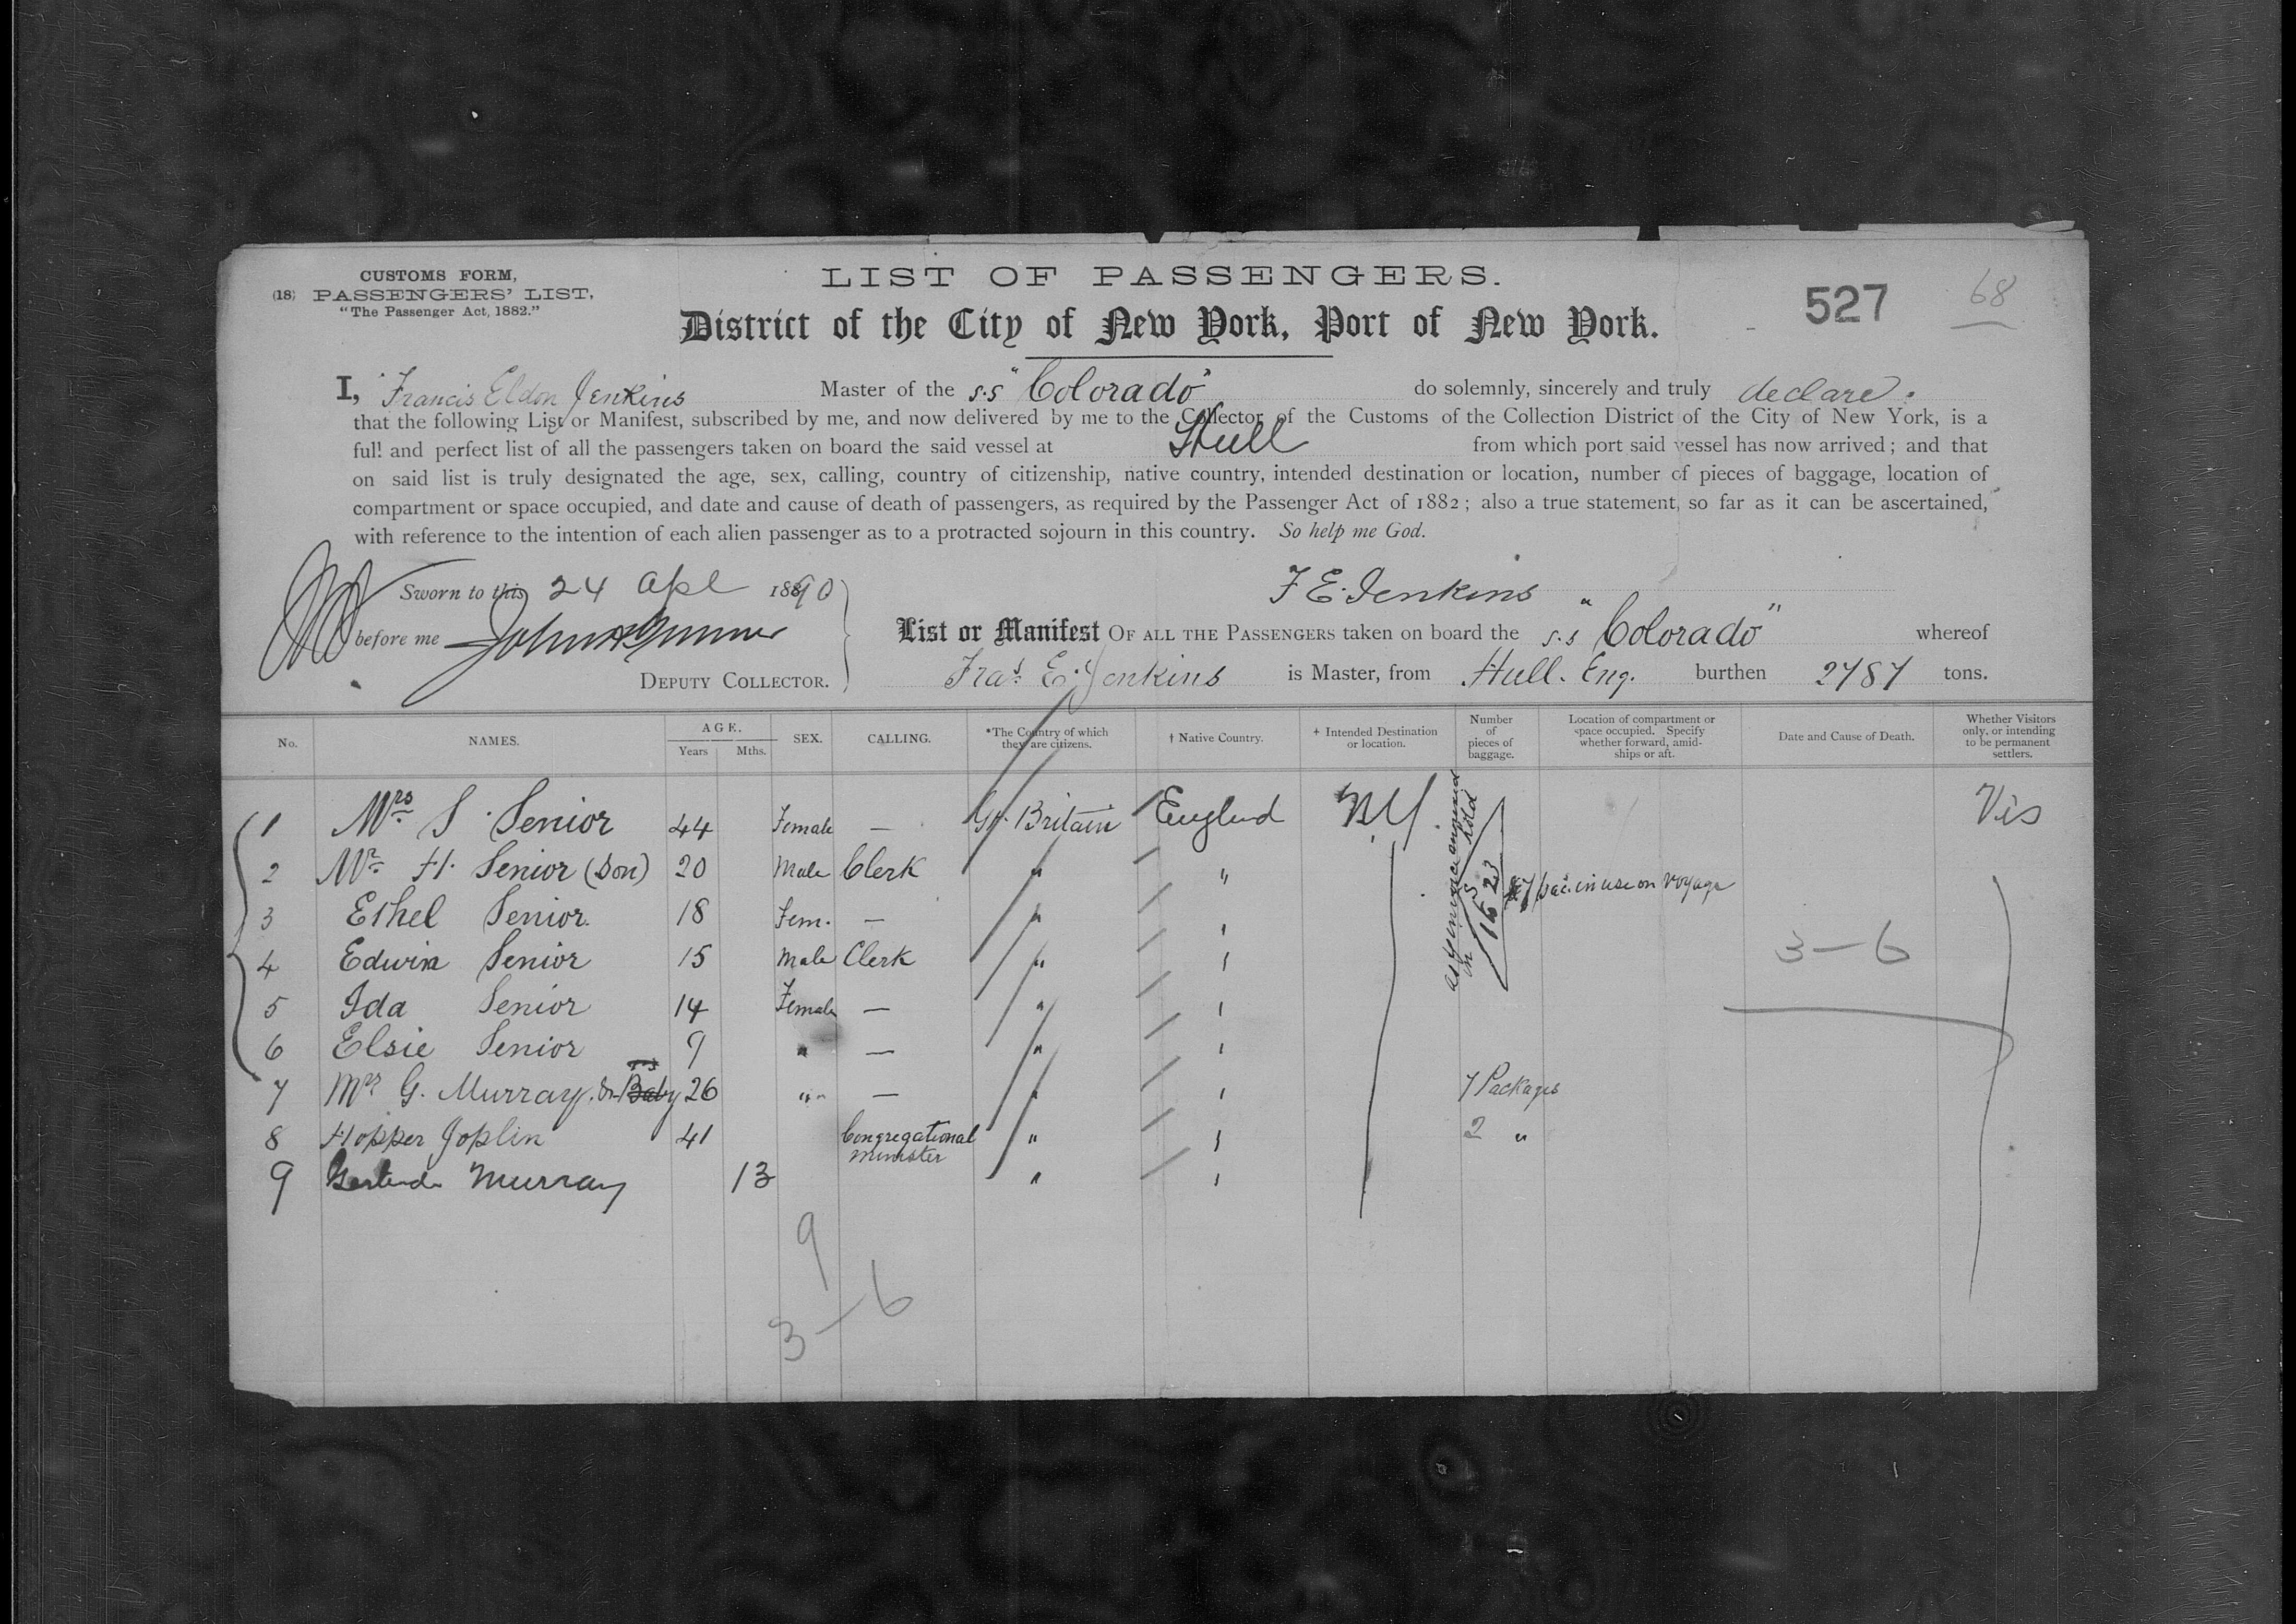 CUSTOMS FORM,
(18) PASSENGERS' LIST,
"The Passenger Act, 1882."
LIST OF PASSENGERS.
District of the City of New York, Port of New York.
527
68
I, Francis Eldon Jenkins Master of the s.s "Colorado" do solemnly, sincerely and truly declare:
that the following List or Manifest, subscribed by me, and now delivered by me to the Collector of the Customs of the Collection District of the City of New York, is a
full and perfect list of all the passengers taken on board the said vessel at Hull from which port said vessel has now arrived; and that
on said list is truly designated the age, sex, calling, country of citizenship, native country, intended destination or location, number of pieces of baggage, location of
compartment or space occupied, and date and cause of death of passengers, as required by the Passenger Act of 1882; also a true statement, so far as it can be ascertained,
with reference to the intention of each alien passenger as to a protracted sojourn in this country. So help me God.
Sworn to this 24 Apl 1890 F E. Jenkins
before me
DEPUTY COLLECTOR.
List or Manifest OF ALL THE PASSENGERS taken on board the s.s "Colorado" whereof
Fras. E. Jenkins is Master, from Hull. Eng. burthen 2787 tons.
No. NAMES. AGE. Years Mths. SEX. CALLING. *The Country of which they are citizens. † Native Country. ‡ Intended Destination or location. Number of pieces of baggage. Location of compartment or space occupied. Specify whether forward, amidships or aft. Date and Cause of Death. Whether Visitors only, or intending to be permanent settlers.
1 Mrs S. Senior 44 Female — Gt. Britain England N.Y. Vis
2 Mr H. Senior (Son) 20 Male Clerk " "
3 Ethel Senior. 18 Fem. — " "
4 Edwin Senior 15 Male Clerk " "
5 Ida Senior 14 Female — " "
6 Elsie Senior 9 " — " "
7 Mrs G. Murray. & Baby 26 " — " " 7 Packages
8 Hopper Joplin 41 Congregational minister " " 2 "
9 Gertrude Murray 13 " "
in hold
16 23
in use on voyage
3-6
9
3-6